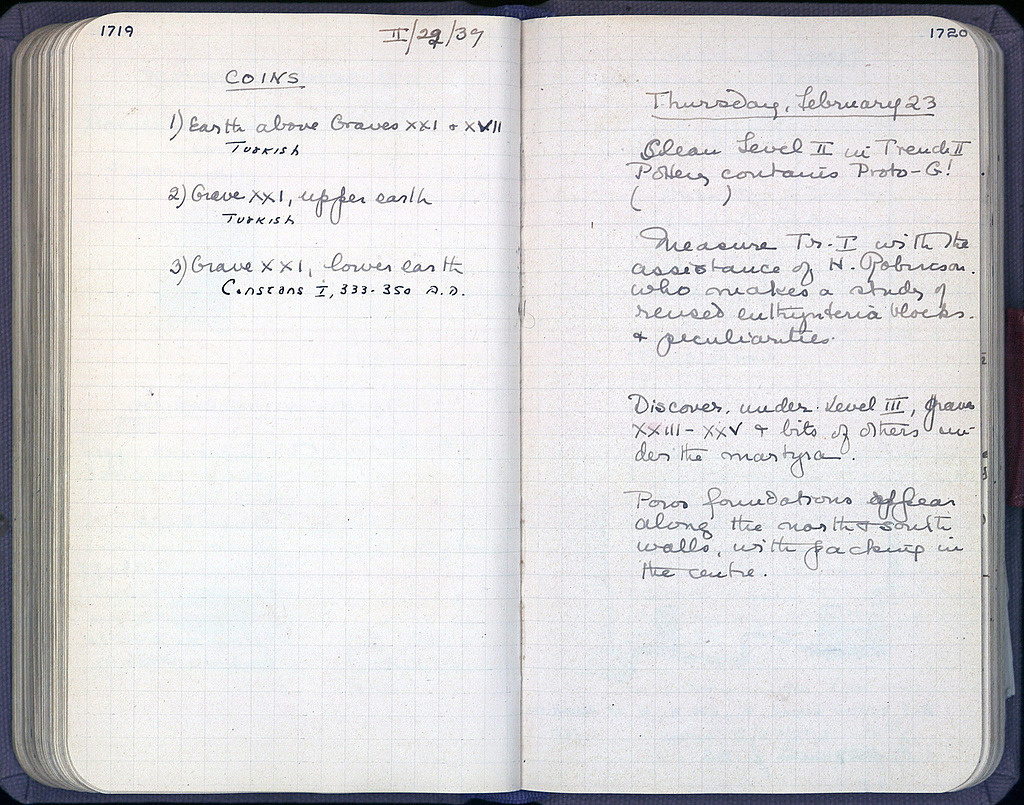 1719
II/22/39
COINS
1) Earth above Graves XXI & XVII
Turkish
2) Grave XXI, upper earth
Turkish
3) Grave XXI, lower earth
Constans I, 333-350 A.D.
1720
Thursday, February 23
Clean Level II in Trench II
Pottery contains Proto-G!
( )
Measure Tr. I with the
assistance of H. Robinson.
who makes a study of
reused euthynteria blocks.
& peculiarities.
Discover, under Level III, graves
XXIII - XXV & bits of others un-
der the martyra.
Poros foundations appear
along the north & south
walls, with packing in
the centre.